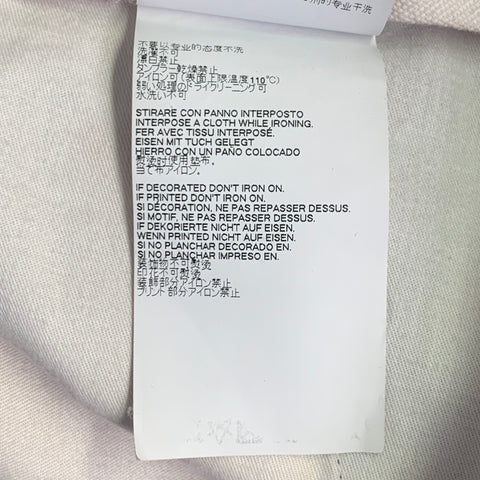 剂的专业干洗
不要以专业的态度不洗
洗濯不可
漂白禁止
タンブラー乾燥禁止
アイロン可(表面上限温度110℃)
弱い処理のドライクリーニング可
水洗い不可
STIRARE CON PANNO INTERPOSTO
INTERPOSE A CLOTH WHILE IRONING.
FER AVEC TISSU INTERPOSÉ.
EISEN MIT TUCH GELEGT
HIERRO CON UN PAÑO COLOCADO
熨烫时使用垫布。
当て布アイロン。
IF DECORATED DON'T IRON ON.
IF PRINTED DON'T IRON ON.
SI DÉCORATION, NE PAS REPASSER DESSUS.
SI MOTIF, NE PAS REPASSER DESSUS.
IF DEKORIERTE NICHT AUF EISEN.
WENN PRINTED NICHT AUF EISEN.
SI NO PLANCHAR DECORADO EN.
SI NO PLANCHAR IMPRESO EN.
装饰物不可熨烫
印花不可熨烫
装飾部分アイロン禁止
プリント部分アイロン禁止